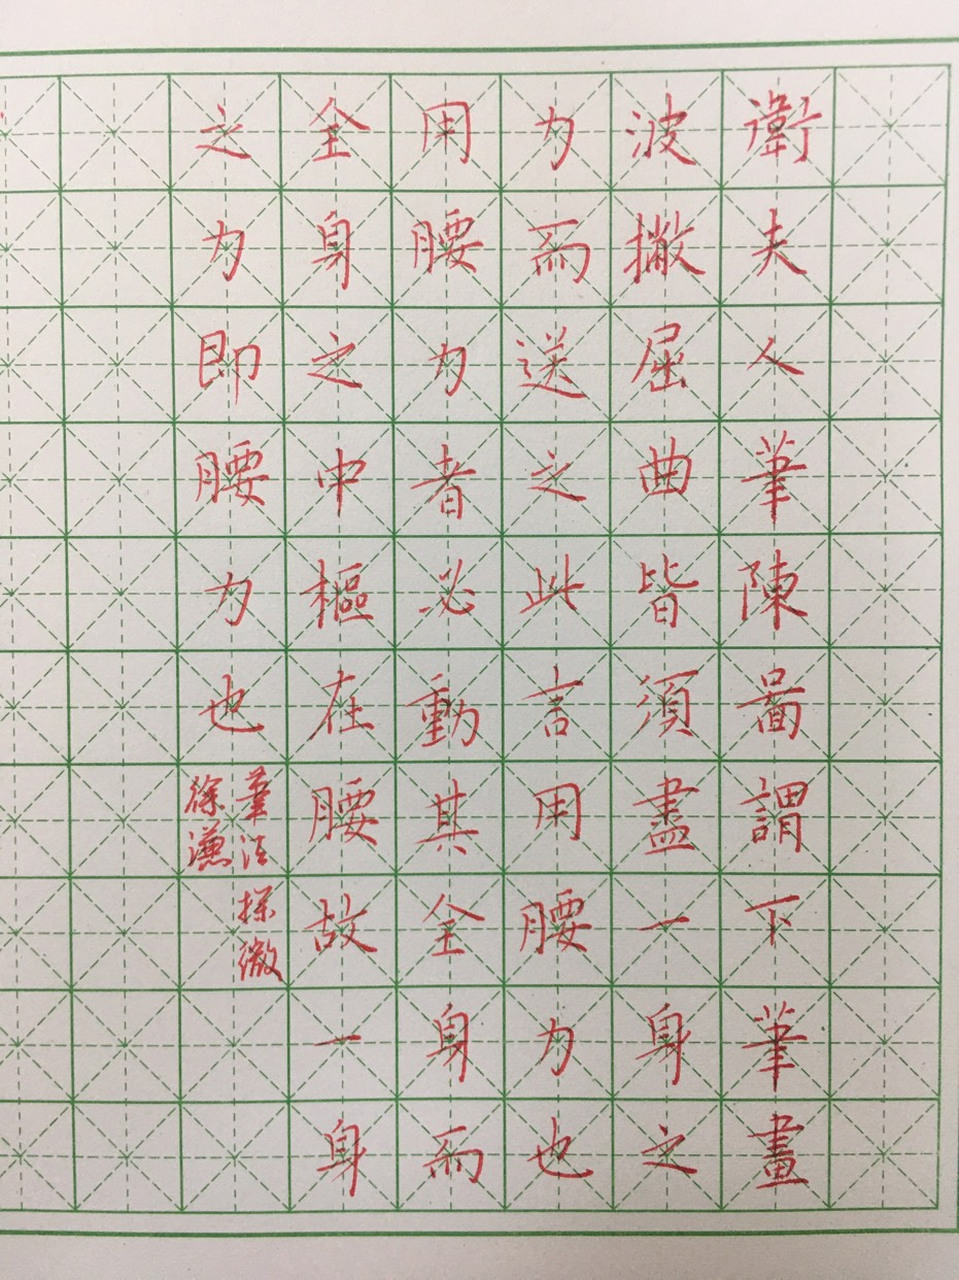 衛夫人筆陳啚謂下筆畫
波撇屈曲皆須盡一身之
力而送之此言用腰力也
用腰力者必動其全身而
全身之中樞在腰故一身
之力即腰力也
筆法探微
徐謙